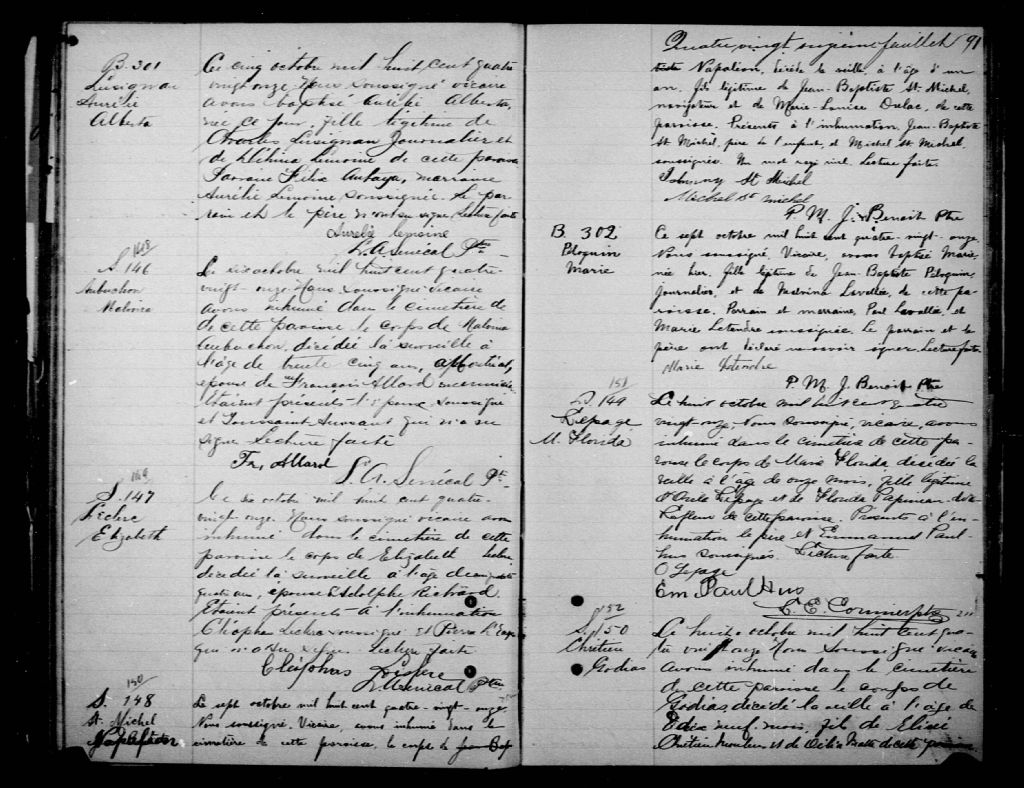 B. 301
Lusignan
Aurélie
Alberta
Ce cinq octobre mil huit cent quatre
vingt onze, Nous soussigné vicaire
avons baptisé Aurélie Alberta,
née ce jour, fille légitime de
Charles Lusignan Journalier et
de Lemoine de cette paroisse
Parrain Félix marraine
Aurélie Lemoine soussignée. Le par-
rain et le père n'ont su signer. Lecture faite
Aurelie lemoine
L. A. Sénécal Ptre
148
S. 146
Aubuchon
Malvina
Le six octobre mil huit cent quatre-
vingt-onze Nous soussigné vicaire
avons inhumé dans le cimetière de
de cette paroisse le corps de Malvina
Aubuchon, décédée la surveille à
l'âge de trente cinq ans,
épouse de François Allard menuisier
Etaient présents l'époux soussigné
et Toussaint qui n'a su
signer Lecture faite
Fr. Allard
L. A. Sénécal Ptre
149
S. 147
Leclerc
Elizabeth
Le six octobre mil huit cent quatre-
vingt-onze. Nous soussigné vicaire avons
inhumé dans le cimetière de cette
paroisse le corps de Elizabeth
décédée la surveille à l'âge de
quatre ans, épouse d'Adolphe Richard.
Etaient présents à l'inhumation
Cléophas soussigné et Pierre
qui n'a su signer. Lecture faite
Cléophas
L. A. Sénécal Ptre
150
S. 148
St. Michel
Le sept octobre mil huit cent quatre-vingt-onze
Nous soussigné, Vicaire, avons inhumé dans le
cimetière de cette paroisse, le corps de Jean Bap
Quatre vingt onzième feuillet 91
Napoléon, décédé la veille, à l'âge d'un
an, fils légitime de Jean-Baptiste St. Michel,
navigateur et de Marie-Louise Dulac, de cette
paroisse. Présents à l'inhumation, Jean-Baptiste
St Michel, père de l'enfant, et Michel St Michel,
soussignés. Un mot rayé nul. Lecture faite.
St Michel
Michel St michel
P. M. J. Benoit Ptre
B. 302
Péloquin
Marie
Ce sept octobre mil huit cent quatre-vingt-onze
Nous soussigné, Vicaire, avons baptisé Marie,
née hier, fille légitime de Jean-Baptiste Péloquin,
journalier, et de Malvina Lavallée, de cette pa-
roisse. Parrain et marraine, Paul Lavallée et
Marie Letendre soussignée. Le parrain et le
père ont déclaré ne savoir signer. Lecture faite.
Marie Letendre
P. M. J. Benoit Ptre
151
S. 149
Lepage
M. Florida
Le huit octobre mil huit cent quatre
vingt onze, Nous soussigné, vicaire, avons
inhumé dans le cimetière de cette pa-
roisse le corps de Marie Florida, décédée la
veille à l'âge de onze mois, fille légitime
Lepage et de Florida Papineau
Lafleur de cette paroisse. Présents à l'in-
humation le père et Emmanuel Paul-
hus soussignés. Lecture faite
O Lepage
Em. Paul Hus
L. E. Cournoyer ptre
152
S. 150
Chrétien
Godias
Le huit octobre mil huit cent qua-
tre vingt onze Nous soussigné vicaire
avons inhumé dans le cimetière
de cette paroisse le corps de
Godias, décédé la veille à l'âge de
neuf mois, fils de Elisée
Chrétien et de de cette paroisse